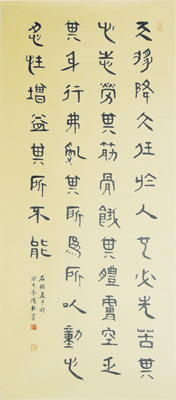 天將降大任於人也必先苦其
心志勞其筋骨餓其體膚空乏
其身行弗亂其所為所以動心
忍性增益其所不能